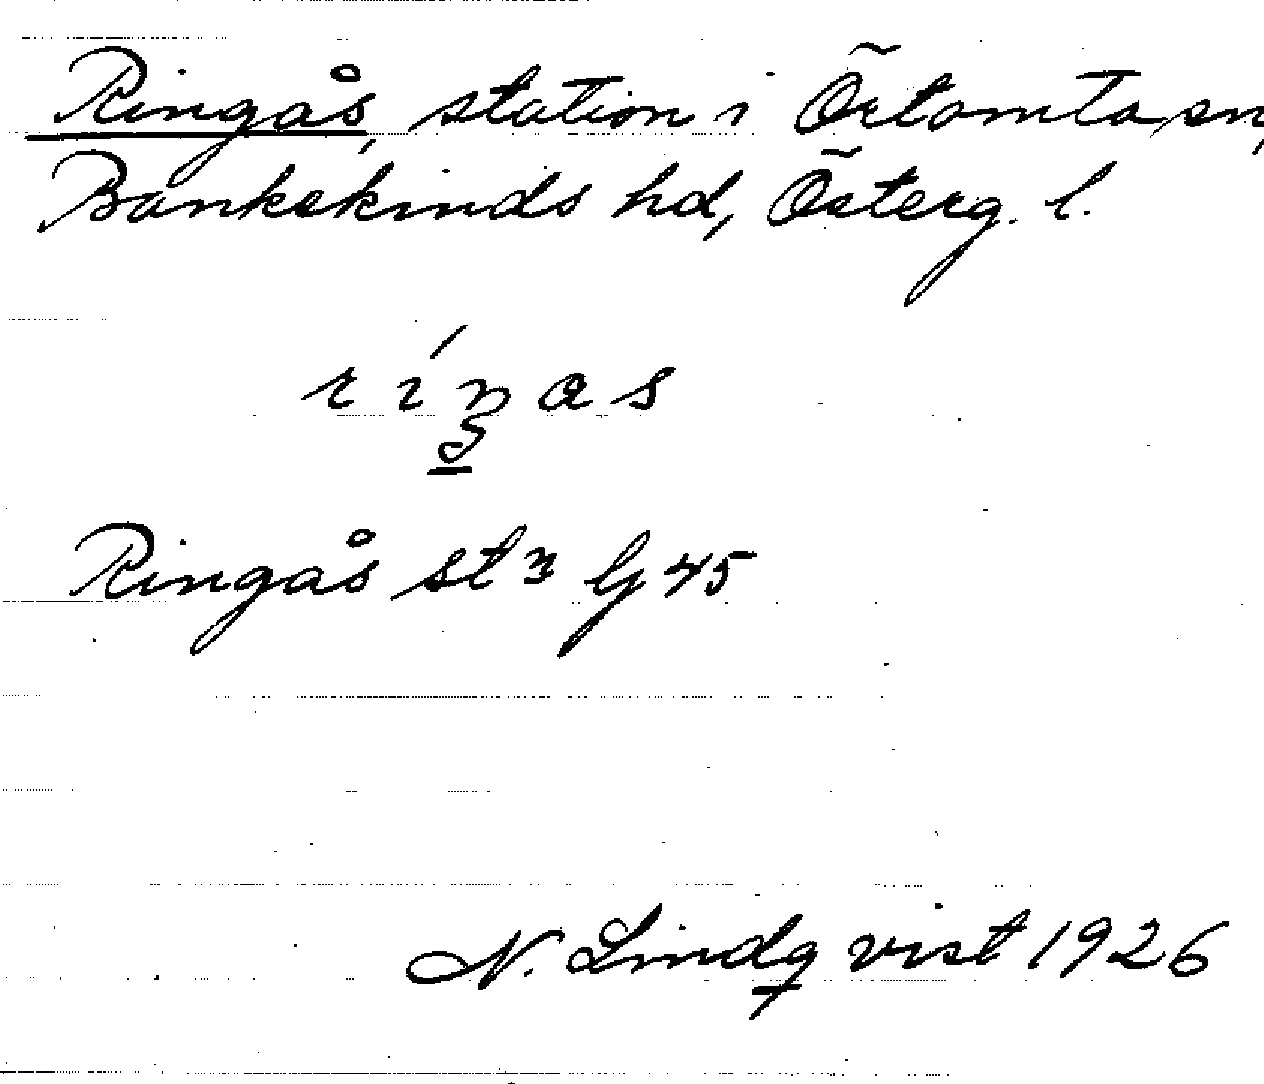 Ringås, station i Örtomta sn,
Bankekinds hd, Österg. l.
Ringås stn G 45
N. Lindqvist 1926